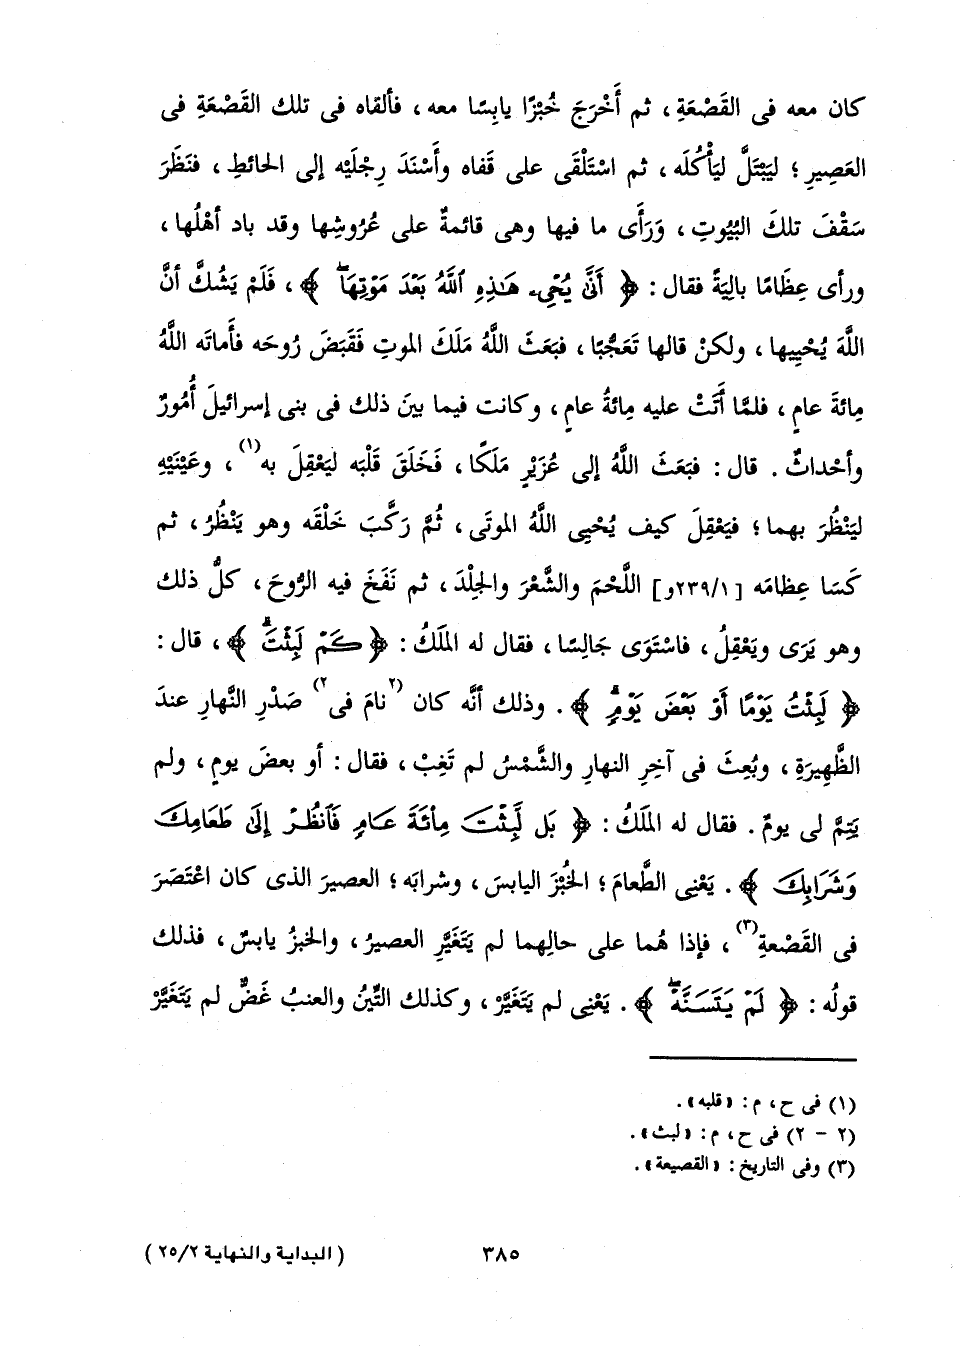 كان معه فى القَصْعَةِ، ثم أَخْرَجَ خُبْزًا يابِسًا معه، فألقاه فى تلك القَصْعَةِ فى
العَصِيرِ؛ ليَبْتَلَّ ليَأْكُلَه، ثم اسْتَلْقَى على قَفاه وأَسْنَدَ رِجْلَيْه إلى الحائطِ، فنَظَرَ
سَقْفَ تلكَ البُيُوتِ، وَرَأَى ما فيها وهى قائمةٌ على عُرُوشِها وقد باد أهْلُها،
ورأى عِظَامًا بالِيَةً فقال: ﴿ أَنَّىٰ يُحْىِۦ هَـٰذِهِ ٱللَّهُ بَعْدَ مَوْتِهَاۖ ﴾، فَلَمْ يَشُكَّ أنَّ
اللَّهَ يُحْيِيها، ولكنْ قالها تَعَجُّبًا، فبَعَثَ اللَّهُ مَلَكَ الموتِ فَقَبَضَ رُوحَه فأَماتَه اللَّهُ
مِائةَ عامٍ، فلمَّا أَتَتْ عليه مِائةُ عامٍ، وكانت فيما بينَ ذلك فى بنى إسرائيلَ أُمُورٌ
وأحْداثٌ. قال: فبَعَثَ اللَّهُ إلى عُزَيْرٍ مَلَكًا، فَخَلَقَ قَلْبَه ليَعْقِلَ به(١)، وعَيْنَيْهِ
ليَنْظُرَ بهما؛ فيَعْقِلَ كيف يُحْيِى اللَّهُ الموتَى، ثُمَّ رَكَّبَ خَلْقَه وهو يَنْظُرُ، ثم
كَسَا عِظامَه [٢٣٩/١و] اللَّحْمَ والشَّعْرَ والجِلْدَ، ثم نَفَخَ فيه الرُّوحَ، كلُّ ذلك
وهو يَرَى ويَعْقِلُ، فاسْتَوَى جَالِسًا، فقال له المَلَكُ: ﴿ كَمْ لَبِثْتَۖ ﴾، قال:
﴿ لَبِثْتُ يَوْمًا أَوْ بَعْضَ يَوْمٍۖ ﴾. وذلك أنَّه كان (٢نامَ فى٢) صَدْرِ النَّهارِ عندَ
الظَّهِيرَةِ، وبُعِثَ فى آخِرِ النهارِ والشَّمْسُ لم تَغِبْ، فقال: أو بعضَ يومٍ، ولم
يَتِمَّ لى يومٌ. فقال له المَلَكُ: ﴿ بَل لَّبِثْتَ مِا۟ئَةَ عَامٍ فَٱنظُرْ إِلَىٰ طَعَامِكَ
وَشَرَابِكَ ﴾. يَعْنِى الطَّعامَ؛ الخُبْزَ اليابسَ، وشرابَه؛ العصيرَ الذى كان اعْتَصَرَ
فى القَصْعةِ(٣)، فإذا هُما على حالِهما لم يَتَغَيَّرِ العصيرُ، والخبزُ يابسٌ، فذلك
قولُه: ﴿ لَمْ يَتَسَنَّهْۖ ﴾. يَعْنِى لم يَتَغَيَّرْ، وكذلك التِّينُ والعنبُ غَضٌّ لم يَتَغَيَّرْ
(١) فى ح، م: «قلبه».
(٢ - ٢) فى ح، م: «لبث».
(٣) وفى التاريخ: «القصيعة».
٣٨٥
(البداية والنهاية ٢٥/٢)